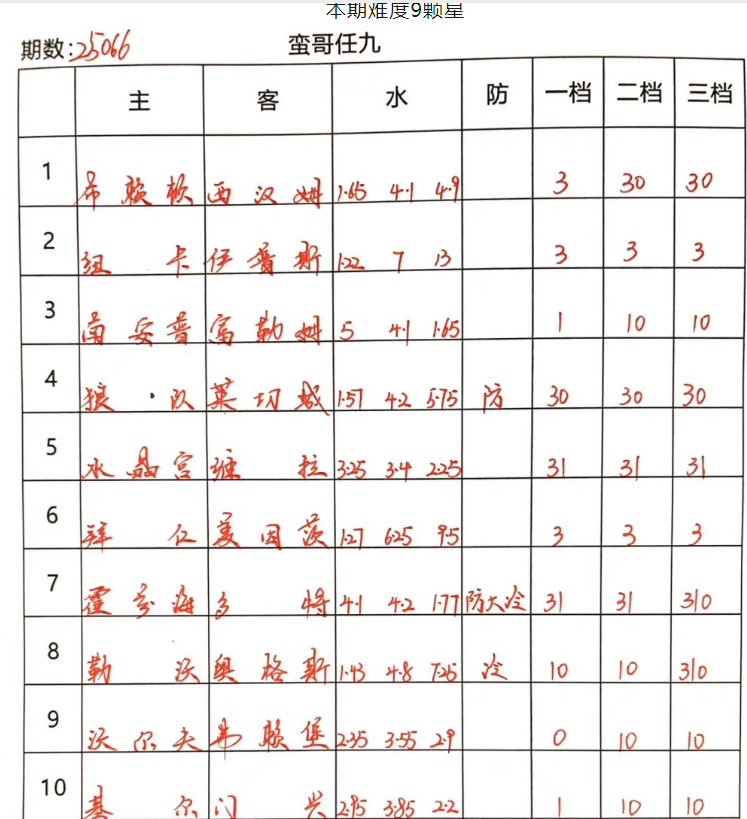 本期难度9颗星
期数:25066 蛮哥任九
主 客 水 防 一档 二档 三档
1 布莱顿 西汉姆 1.65 4.1 4.9 3 30 30
2 纽卡 伊普斯 1.22 7 13 3 3 3
3 南安普 富勒姆 5 4.1 1.65 1 10 10
4 狼·队 莱切城 1.57 4.2 5.75 防 30 30 30
5 水晶宫 维拉 3.25 3.4 2.25 31 31 31
6 拜仁 美因茨 1.27 6.25 9.5 3 3 3
7 霍芬海 多特 4.1 4.2 1.77 防大冷 31 31 310
8 勒沃 奥格斯 1.43 4.8 7.25 冷 10 10 310
9 沃尔夫 弗赖堡 2.35 3.55 2.9 0 10 10
10 基尔 门兴 2.95 3.85 2.2 1 10 10